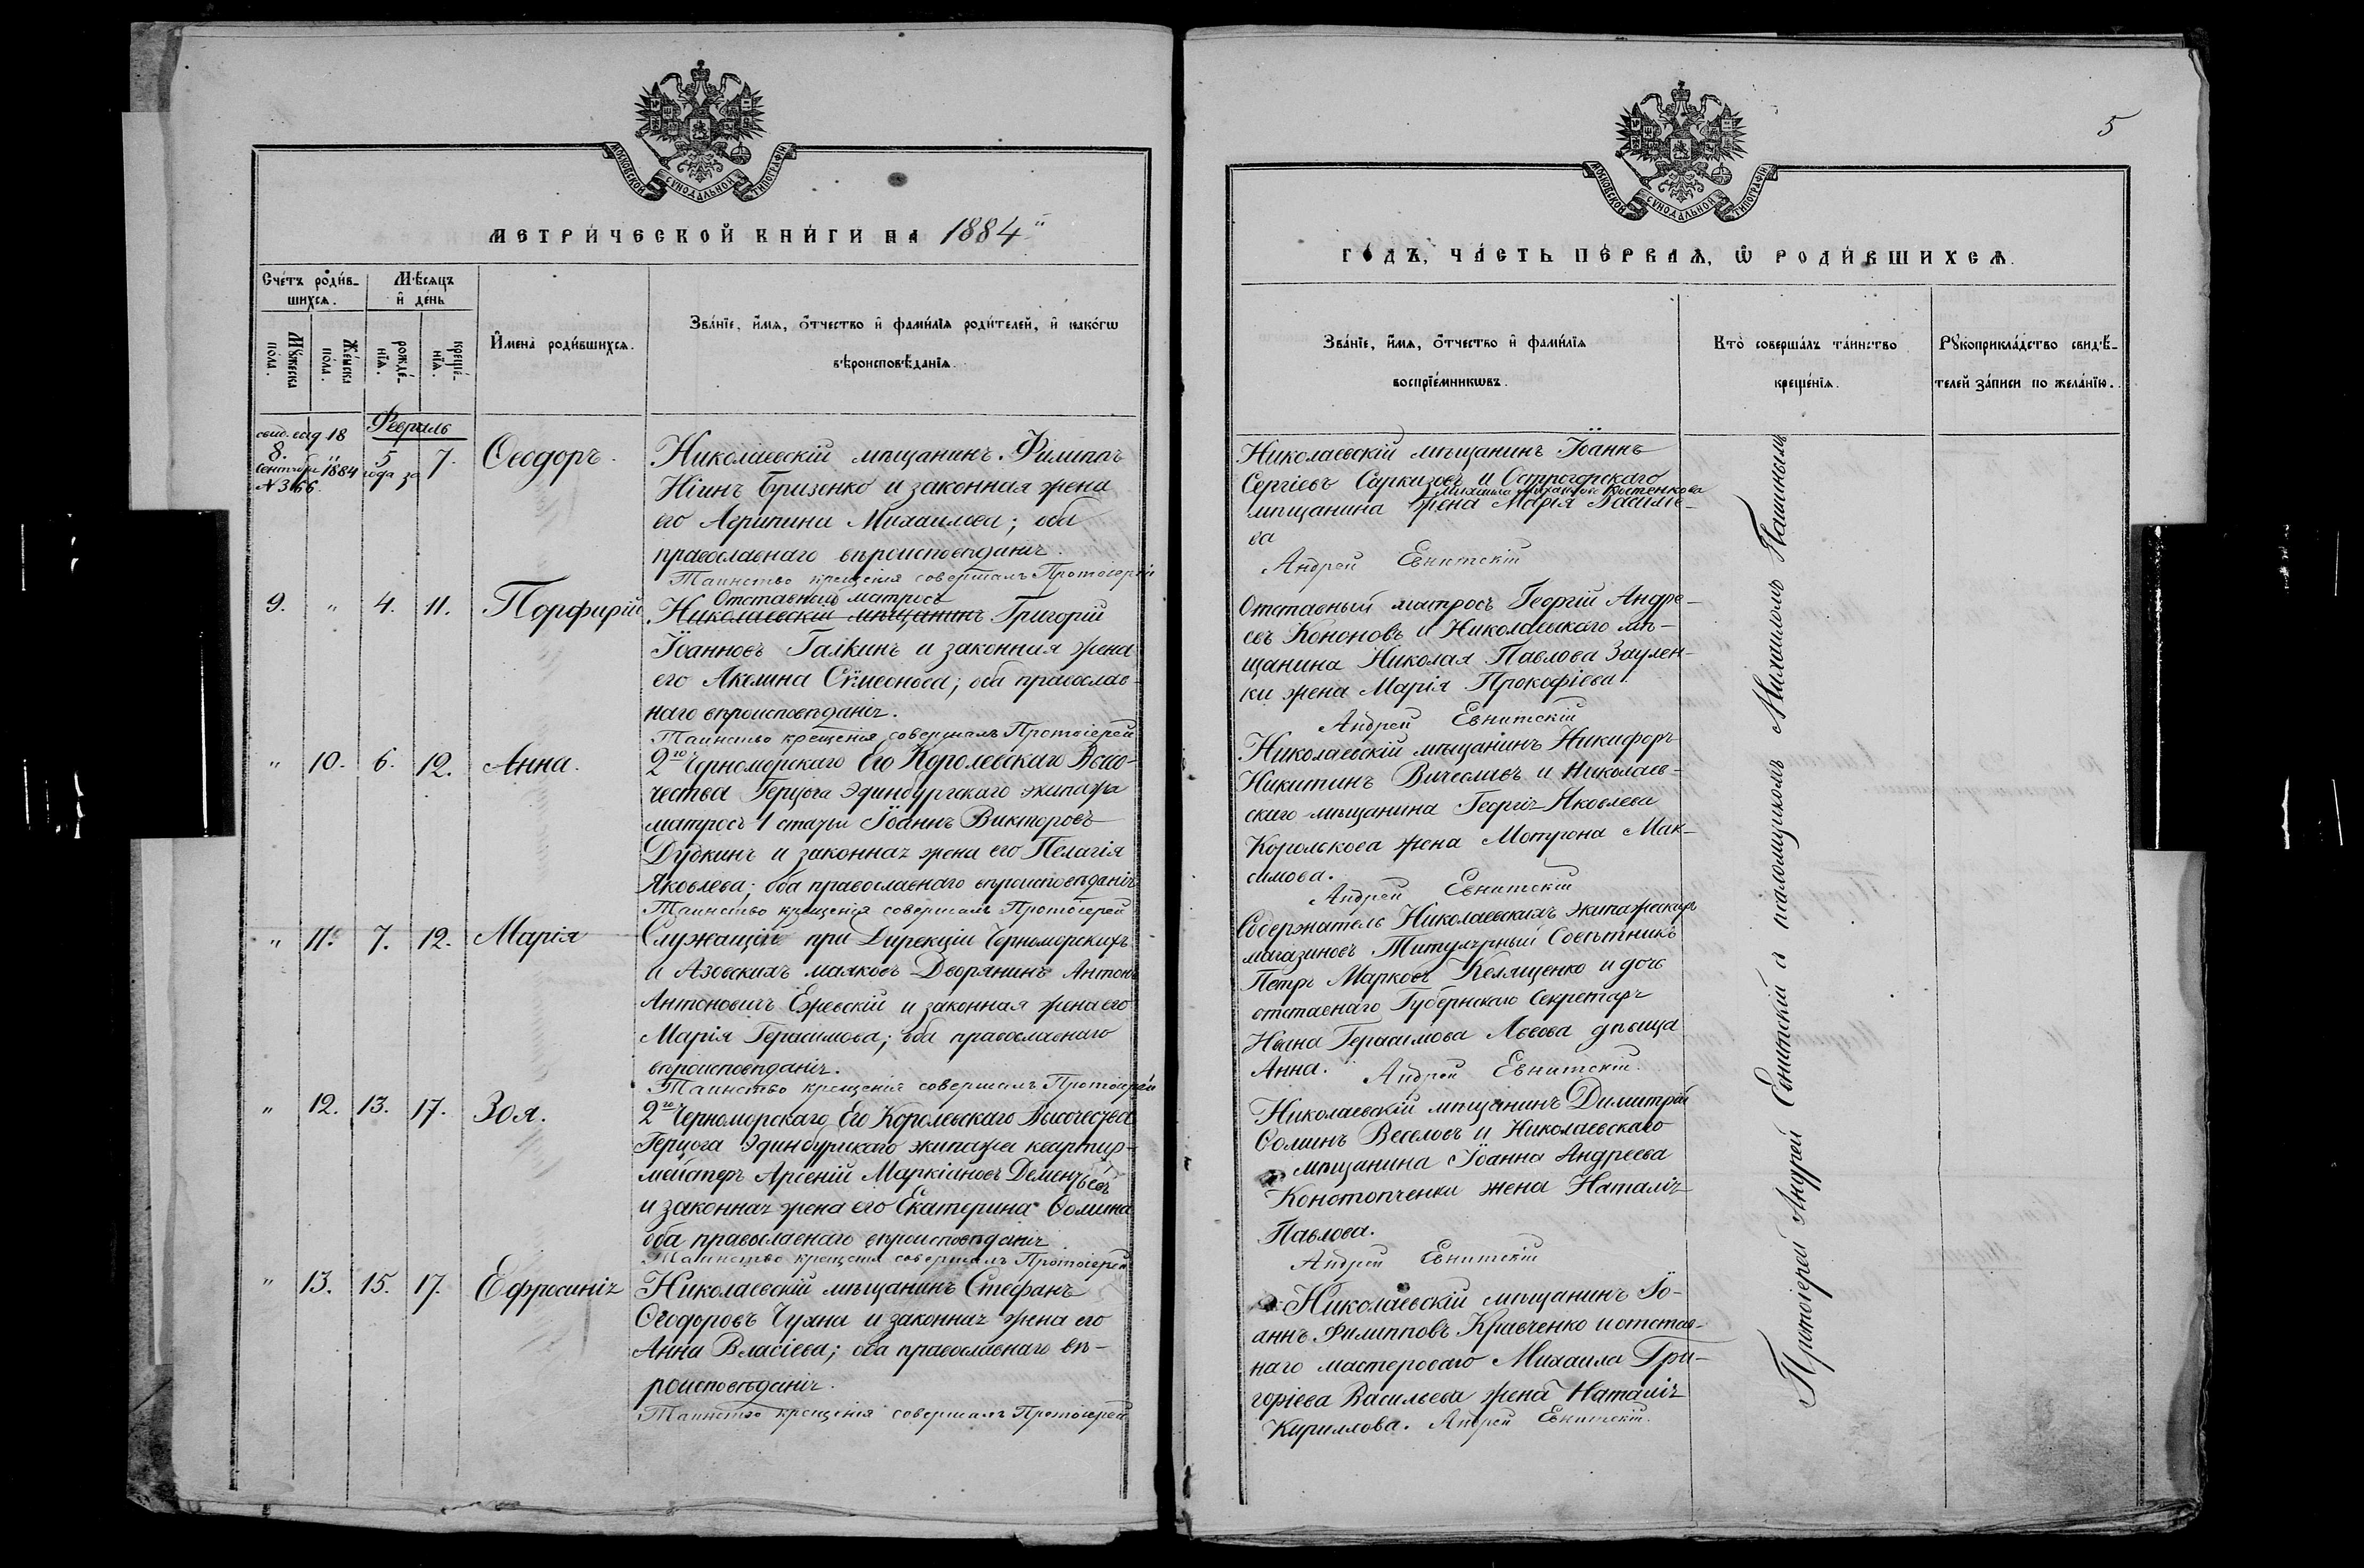 МОСКОВСКОЙ СѴНОДАЛЬНОЙ ТИПОГРАФІИ
МЕТРИ́ЧЕСКОЙ КНИ́ГИ НА 1884 й
Сче́тъ роди́в-
шихсѧ.
Мѣ́сѧцъ
и҆ де́нь
Мꙋ́жеска
пола.
Же́нска
пола.
рожде́-
нїѧ.
креще́-
нїѧ.
И҆мена̀ роди́вшихсѧ.
Зва́нїе, и҆́мѧ, ѻ҆́тчество и҆ фамі́лїѧ роди́телей, и҆ како́гѡ
вѣроисповѣ́данїѧ.
Февраль
свид. выд 18
8. " 5 7. Ѳеодоръ.
Сентябр 1884 года за
№ 366
Николаевскій мѣщанинъ Филиппъ
Нінъ Бризенко и законная жена
его Агрипина Михаилова; оба
православнаго вѣроисповѣданія.
Таинство крещенія совершалъ Протоіерей
9. " 4. 11. Порфирій
Отставный матросъ
Николаевскій мѣщанинъ Григорій
Іоанновъ Галкинъ и законная жена
его Акелина Сѷмеонова; оба православ-
наго вѣроисповѣданія.
Таинство крещенія совершалъ Протоіерей
" 10. 6. 12. Анна.
2го Черноморскаго Его Королевскаго Высо-
чества Герцога Эдинбургскаго экипажа
матросъ 1 статьи Іоаннъ Викторовъ
Дубкинъ и законная жена его Пелагія
Яковлева; оба православнаго вѣроисповѣданія
Таинство крещенія совершалъ Протоіерей
" 11. 7. 12. Марія
Служащій при Дирекціи Черноморскихъ
и Азовскихъ маяковъ Дворянинъ Антонъ
Антоновичъ Ежевскій и законная жена его
Марія Герасимова; оба православнаго
вѣроисповѣданія.
Таинство крещенія совершалъ Протоіерей
" 12. 13. 17. Зоя.
2го Черноморскаго Его Королевскаго Высочества
Герцога Эдинбургскаго экипажа квартир-
мейстеръ Арсеній Маркіановъ Дементьевъ
и законная жена его Екатерина Ѳомина
оба православнаго вѣроисповѣданія
Таинство крещенія совершалъ Протоіерей
" 13. 15. 17. Ефросинія
Николаевскій мѣщанинъ Стефанъ
Ѳеодоровъ Чухна и законная жена его
Анна Власіева; оба православнаго вѣ-
роисповѣданія.
Таинство крещенія совершалъ Протоіерей
5
МОСКОВСКОЙ СѴНОДАЛЬНОЙ ТИПОГРАФІИ
ГО́ДЪ, ЧА́СТЬ ПЕ́РВАѦ, Ѡ҆ РОДИ́ВШИХСѦ.
Зва́нїе, и҆́мѧ, ѻ҆́тчество и҆ фамі́лїѧ
воспрїе́мникѡвъ.
Кто̀ соверша́лъ та́инство
креще́нїѧ.
Рꙋкоприкла́дство свидѣ́-
телей за́писи по жела́нїю.
Николаевскій мѣщанинъ Іоаннъ
Сергіевъ Саркизовъ и Острогорскаго
Михаила Михайлова Костенкова
мѣщанина жена Марія Василіе-
ва
Андрей Евнитскій
Отставный матросъ Георгій Андре-
евъ Кононовъ и Николаевскаго мѣ-
щанина Николая Павлова Заулен-
ки жена Марія Прокофіева.
Андрей Евнитскій
Николаевскій мѣщанинъ Никифоръ
Никитинъ Вичеславъ и Николаев-
скаго мѣщанина Георгія Яковлева
Королькова жена Мотрона Мак-
симова.
Андрей Евнитскій
Содержатель Николаевскихъ экипажескихъ
магазиновъ Титулярный Совѣтникъ
Петръ Марковъ Келященко и дочь
отставнаго Губернскаго Секретаря
Герасимова Львова дѣвица
Анна. Андрей Евнитскій.
Николаевскій мѣщанинъ Димитрій
Ѳоминъ Веселовъ и Николаевскаго
мѣщанина Іоанна Андреева
Констопченки жена Наталія
Павлова.
Андрей Евнитскій
Николаевскій мѣщанинъ Іо-
аннъ Филипповъ Кравченко и отстав-
наго мастероваго Михаила Гри-
горіева Васильева жена Наталія
Кириллова. Андрей Евнитскій.
Протоіерей Андрей Евнитскій съ псаломщикомъ Михаиломъ Пашинымъ